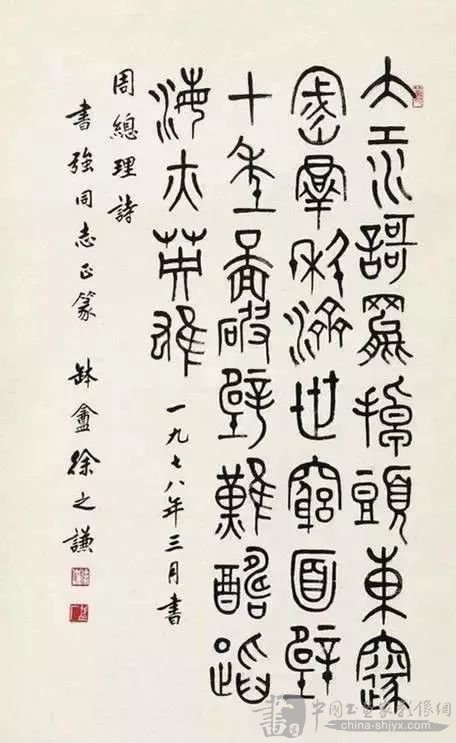 大江謌罷掉頭東邃
密羣科濟世窮面壁
十年圖破壁難酬蹈
海亦英雄 一九七八年三月書
周總理詩
書強同志正篆 缽盦徐之謙
中国书画家影像網
www.china-shjyx.com